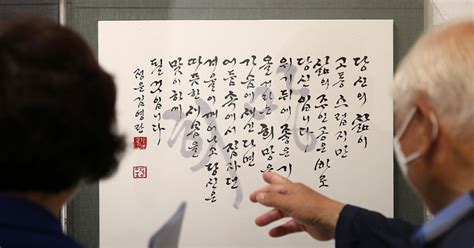 당신의 삶이
고통스럽지만
삶의 주인공은 바로
당신입니다
위기 뒤에 좋은 기
올 거란 희망을
가슴에 새긴다면
어둠 속에서 잠자던
겨울이 깨어나 당신은
따뜻한 새 봄을
맞이하게
될 것입니다
김영란